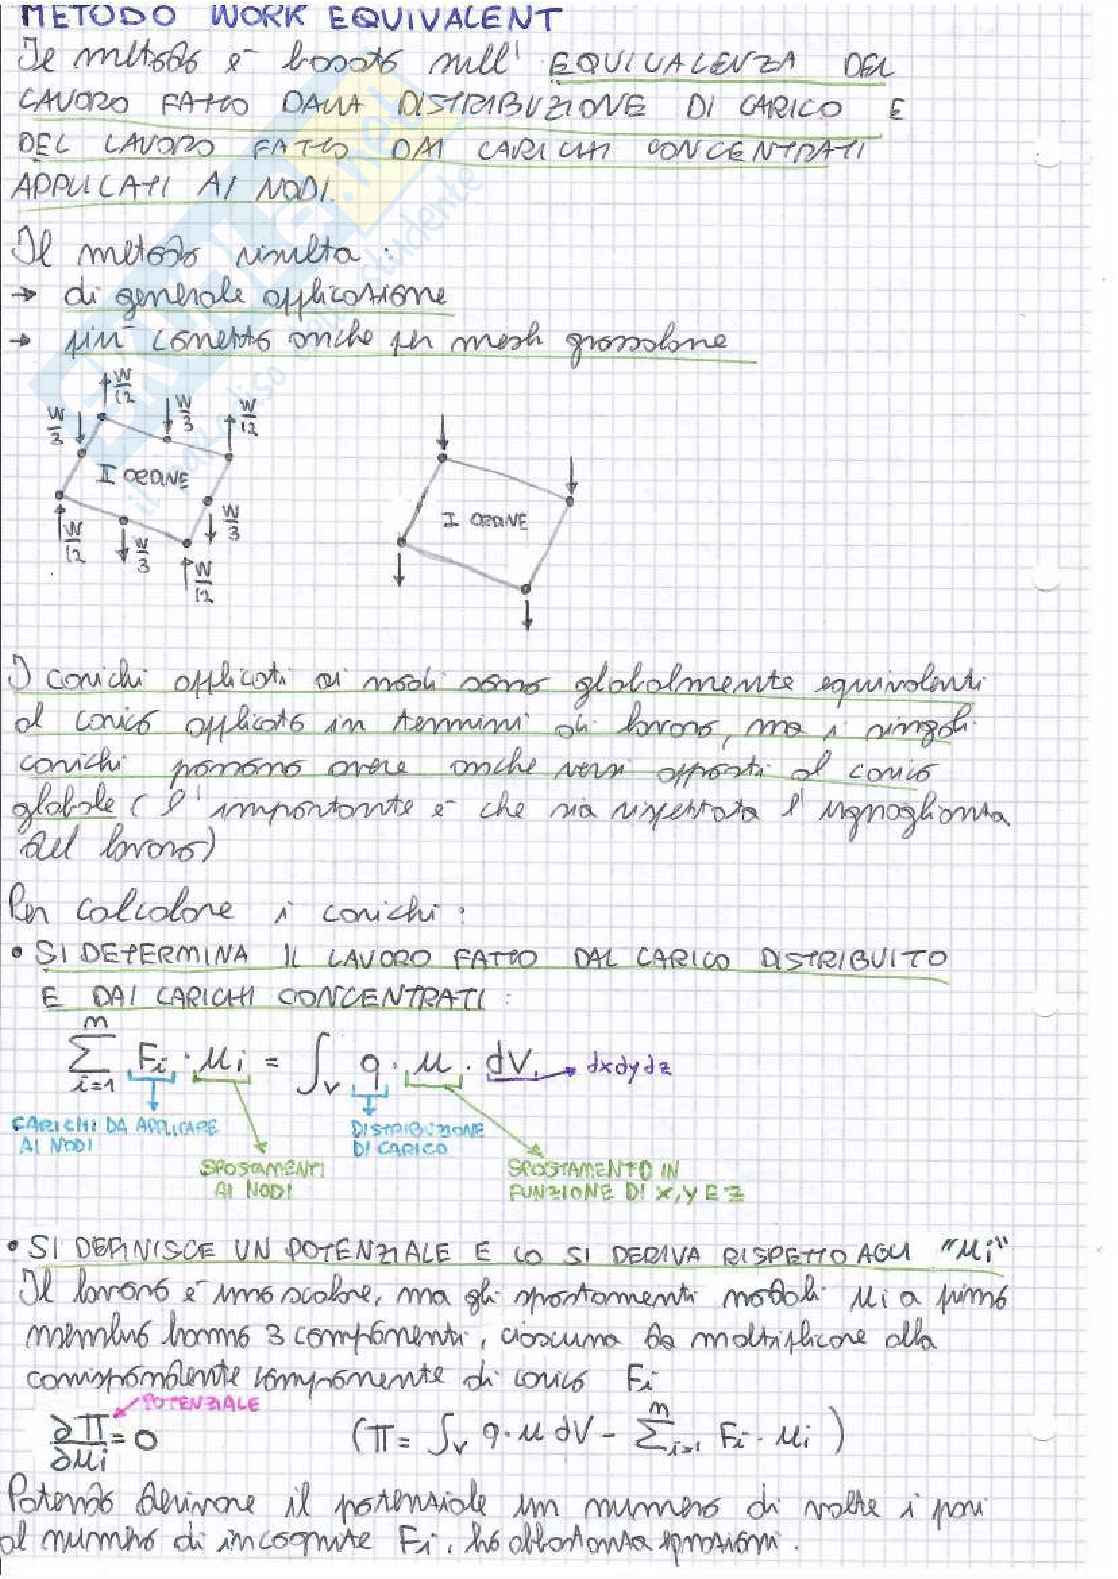 METODO WORK EQUIVALENT
Il metodo è basato sull' EQUIVALENZA DEL
LAVORO FATTO DALLA DISTRIBUZIONE DI CARICO E
DEL LAVORO FATTO DAI CARICHI CONCENTRATI
APPLICATI AI NODI.
Il metodo risulta:
→ di generale applicazione
→ più corretto anche per mesh grossolane
W/12
W/3
W/3
W/12
II ORDINE
I ORDINE
W/3
W/12
W/3
W/12
I carichi applicati ai nodi sono globalmente equivalenti
al carico applicato in termini di lavoro, ma i singoli
carichi possono avere anche versi opposti al carico
globale (l'importante è che sia rispettata l'uguaglianza
del lavoro)
Per calcolare i carichi:
• SI DETERMINA IL LAVORO FATTO DAL CARICO DISTRIBUITO
E DAI CARICHI CONCENTRATI:
∑_{i=1}^{m} Fi · ui = ∫_V q · u · dV → dxdydz
CARICHI DA APPLICARE
AI NODI
DISTRIBUZIONE
DI CARICO
SPOSTAMENTI
AI NODI
SPOSTAMENTO IN
FUNZIONE DI X, Y E Z
• SI DEFINISCE UN POTENZIALE E LO SI DERIVA RISPETTO AGLI "ui"
Il lavoro è uno scalare, ma gli spostamenti nodali ui a primo
membro hanno 3 componenti, ciascuna da moltiplicare alla
corrispondente componente di carico Fi
POTENZIALE
∂Π/∂ui = 0 (Π = ∫_V q · u dV - ∑_{i=1}^{m} Fi · ui)
Potendo derivare il potenziale un numero di volte i pari
al numero di incognite Fi, ho abbastanza equazioni.